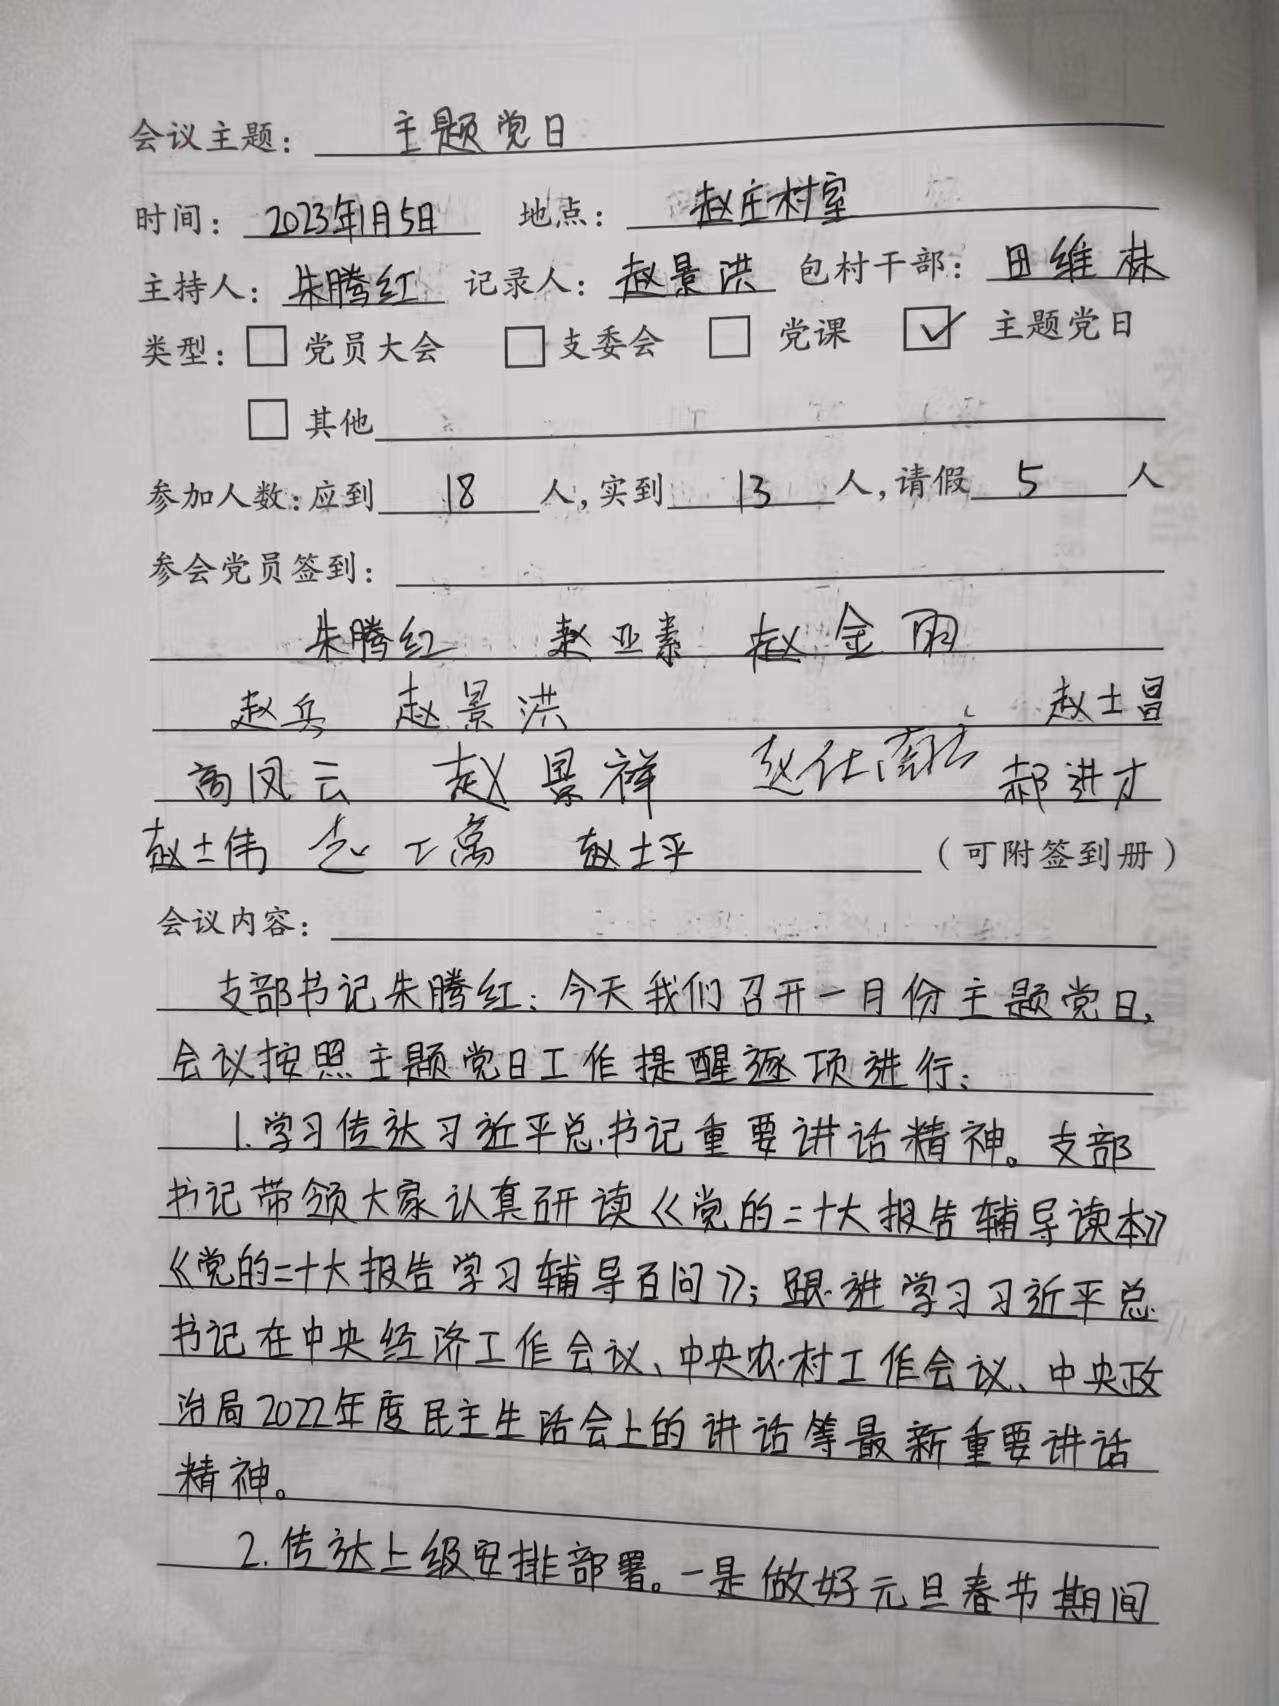 会议主题： 主题党日
时间： 2023年1月5日 地点： 赵庄村室
主持人： 朱腾红 记录人： 赵景洪 包村干部： 田维林
类型：□党员大会 □支委会 □党课 ☑主题党日
□其他
参加人数：应到 18 人，实到 13 人，请假 5 人
参会党员签到：
朱腾红 赵亚素 赵金雨
赵兵 赵景洪 赵士昌
高凤云 赵景祥 赵仕 郝进才
赵士伟 赵 赵士平 （可附签到册）
会议内容：
支部书记朱腾红：今天我们召开一月份主题党日，
会议按照主题党日工作提醒逐项进行：
1.学习传达习近平总书记重要讲话精神。支部
书记带领大家认真研读《党的二十大报告辅导读本》
《党的二十大报告学习辅导百问》；跟进学习习近平总
书记在中央经济工作会议、中央农村工作会议、中央政
治局2022年度民主生活会上的讲话等最新重要讲话
精神。
2.传达上级安排部署。一是做好元旦春节期间